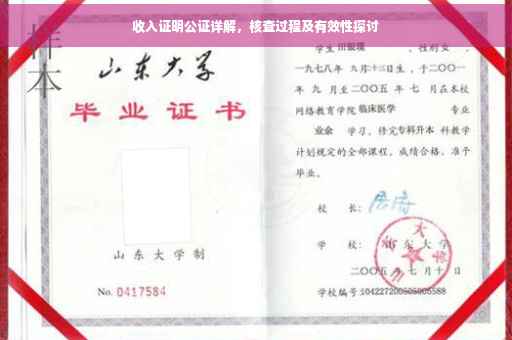 收入证明公证详解，核查过程及有效性探讨
样本
山东大学
毕业证书
山东大学制
No. 0417584
学生田银瑞，性别女，
一九七八年九月十三日生，于二〇〇一
年九月至二〇〇五年七月在本校
网络教育学院临床医学 专业
业余 学习，修完专科升本科教学
计划规定的全部课程，成绩合格，准予
毕业。
校 长：
学 校：山东大学
二〇〇五年七月十日
学校编号：104227200505005588